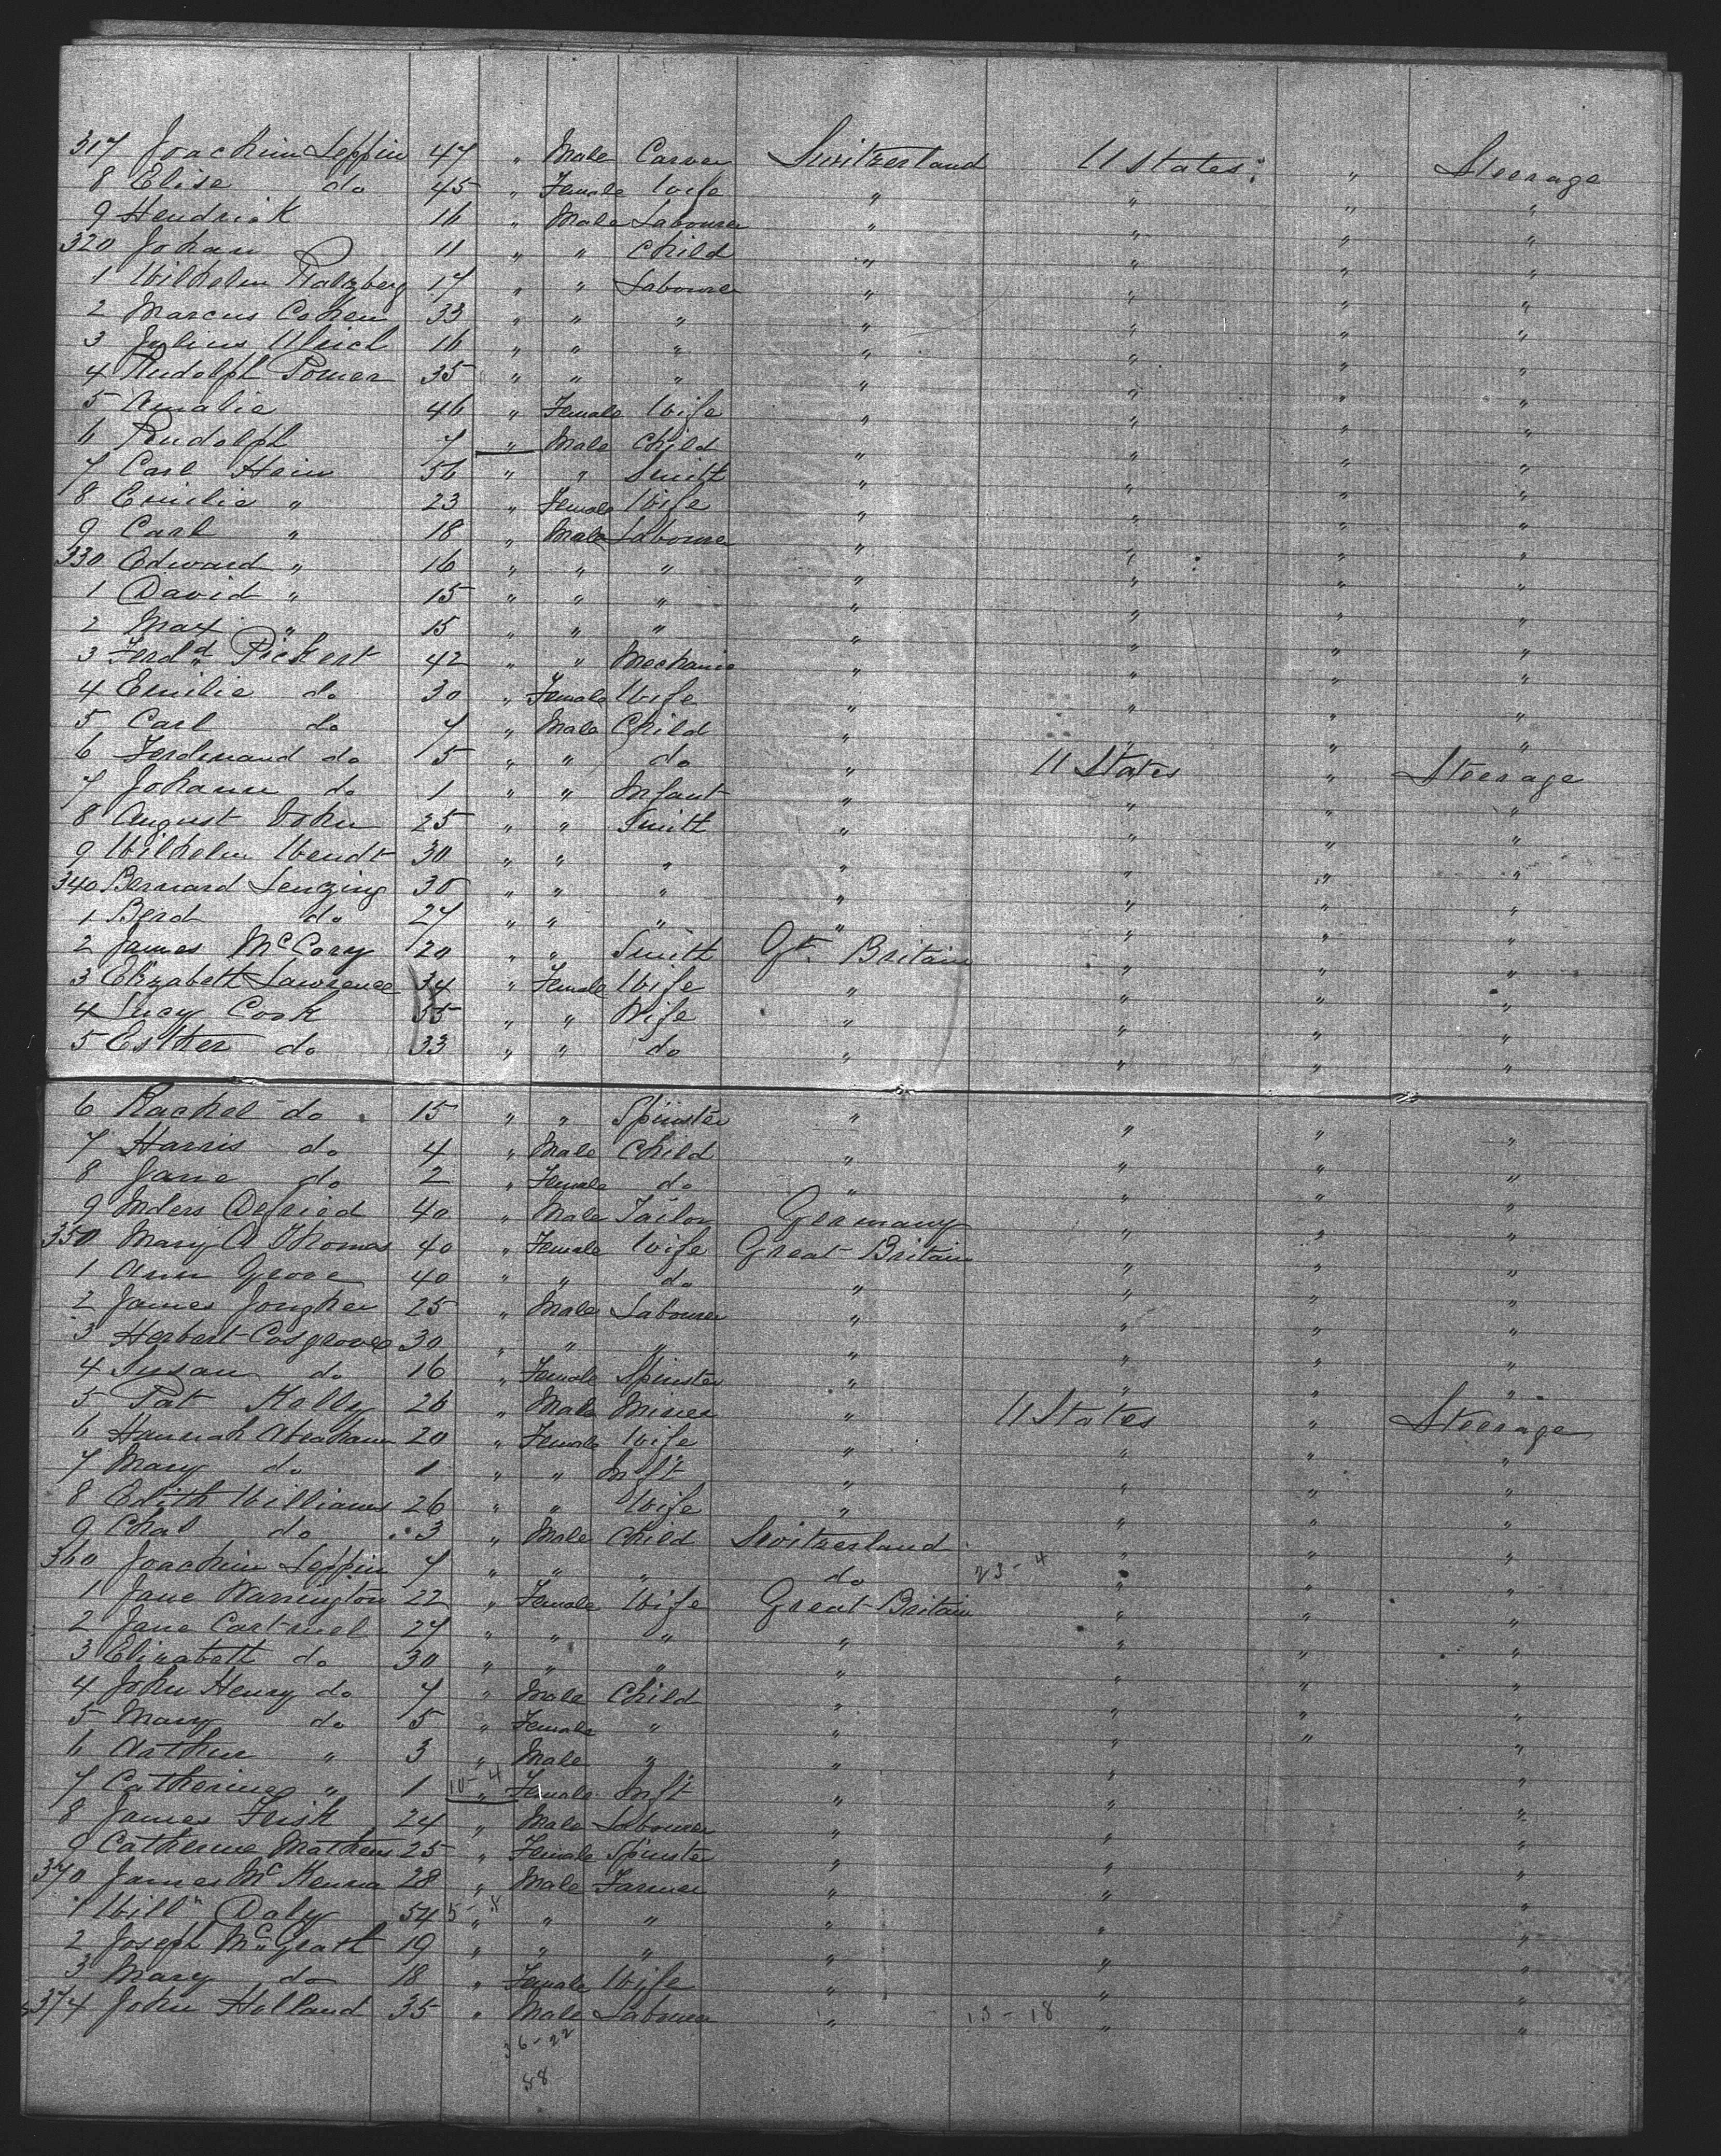 317 Joachim Leppin 47 " Male Carver Switzerland U States " Steerage
8 Elise do 45 " Female Wife " " " "
9 Hendrick 16 " Male Labourer " " " "
320 Johan 11 " " Child " " " "
1 Wilhelm 17 " " Labourer " " " "
2 Marcus Cohen 33 " " " " " " "
3 Julius Ulrich 16 " " " " " " "
4 Rudolph Pomer 35 " " " " " " "
5 Amalie 46 " Female Wife " " " "
6 Rudolph 7 " Male Child " " " "
7 Carl Hein 56 " " Smith " " " "
8 Emilie " 23 " Female Wife " " " "
9 Carl " 18 " Male Labourer " " " "
330 Edward " 16 " " " " " " "
1 David " 15 " " " " " " "
2 Max " 15 " " " " " " "
3 Ferdd Pickert 42 " " Mechanic " " " "
4 Emilie do 30 " Female Wife " " " "
5 Carl do 7 " Male Child " " " "
6 Ferdinand do 5 " " do " U States " Steerage
7 Johann do 1 " " Infant " " " "
8 August John 25 " " Smith " " " "
9 Wilhelm Wendt 30 " " " " " " "
340 Bernard Lenzing 30 " " " " " " "
1 Berd do 27 " " " " " " "
2 James McCory 20 " " Smith Gt. Britain " " "
3 Elizabeth Lawrence 34 " Female Wife " " " "
4 Lucy Cook 35 " " Wife " " " "
5 Esther do 33 " " do " " " "
6 Rachel do 15 " " Spinster " " " "
7 Harris do 4 " Male Child " " " "
8 Jane do 2 " Female do " " " "
9 40 " Male Tailor Germany " " "
350 Mary A Thomas 40 " Female Wife Great Britain " " "
1 Ann Grove 40 " " do " " " "
2 James 25 " Male Labourer " " " "
3 Herbert Cosgrove 30 " " " " " " "
4 Susan do 16 " Female Spinster " " " "
5 Pat Kelly 26 " Male Miner " U States " Steerage
6 Hannah Abraham 20 " Female Wife " " " "
7 Mary do 1 " " Inft " " " "
8 Edith Williams 26 " " Wife " " " "
9 Chas do 3 " Male Child Switzerland " " "
360 Joachim Leppin 7 " " " do 23-4 " " "
1 Jane Warrington 22 " Female Wife Great Britain " " "
2 Jane Cartmel 27 " " " " " " "
3 Elizabeth do 30 " " " " " " "
4 John Henry do 7 " Male Child " " " "
5 Mary do 5 " Female " " " " "
6 Arthur " 3 " Male " " " "
7 Catherine " 1 10-4 " Female Inft " " "
8 James Fisk 24 " Male Labourer " " "
9 Catherine Mathews 25 " Female Spinster " " "
370 James McKenna 28 " Male Farmer " " "
1 Willm Daly 54 " " " " " "
2 Joseph McGrath 19 " " " " " "
3 Mary do 18 " Female Wife " " "
374 John Holland 35 " Male Labourer " 13-18 " "
36-22
58